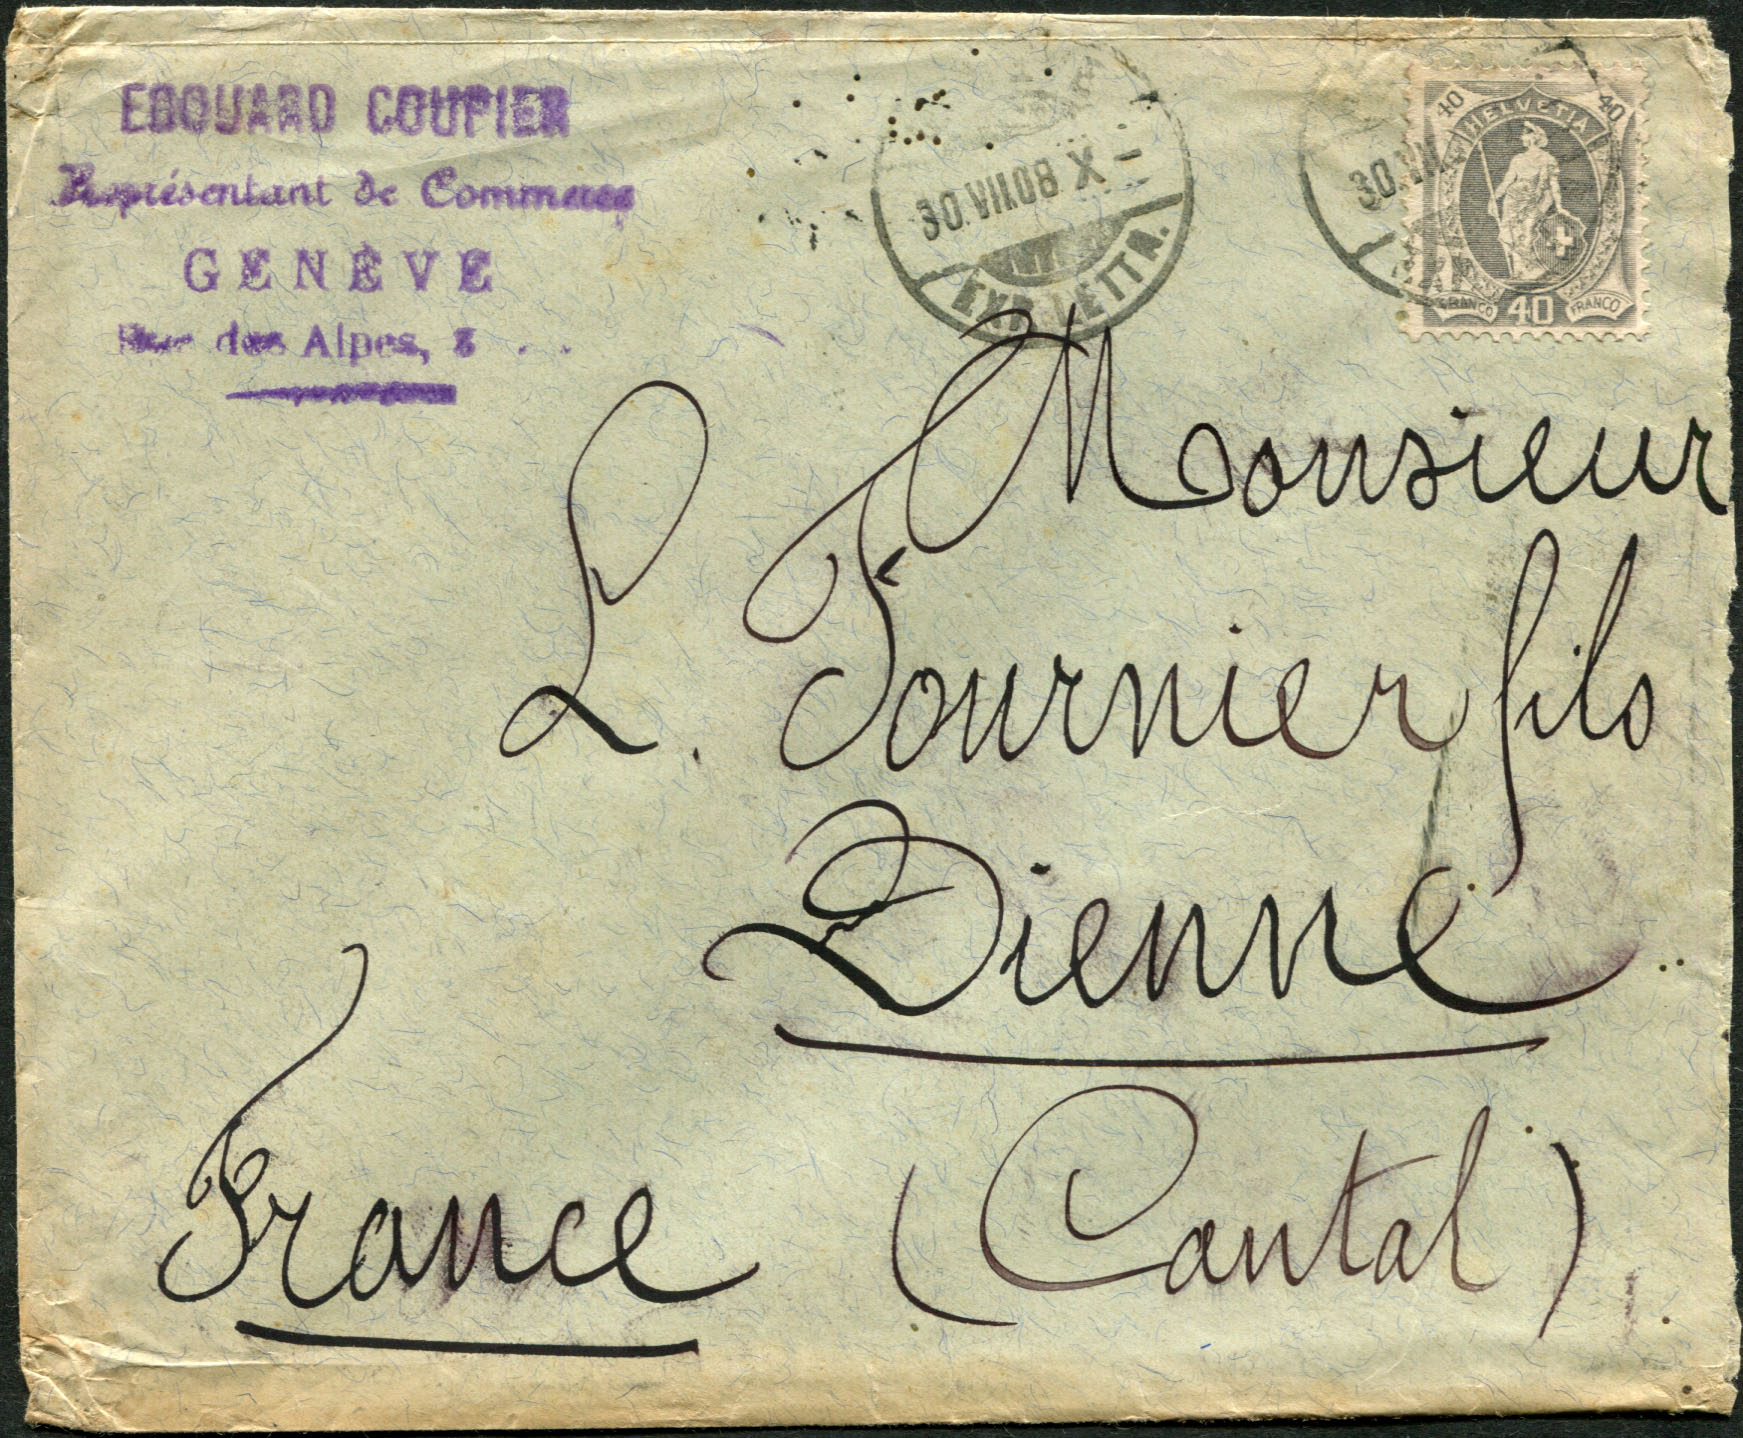 EDOUARD COUPIER
Représentant de Commerce
GENÈVE
Rue des Alpes, 3
30.VII.08 X -
EXP. LETTR.
30.VII
40 HELVETIA 40
FRANCO 40 FRANCO
Monsieur
L. Fournier fils
Dienne
(Cantal)
France